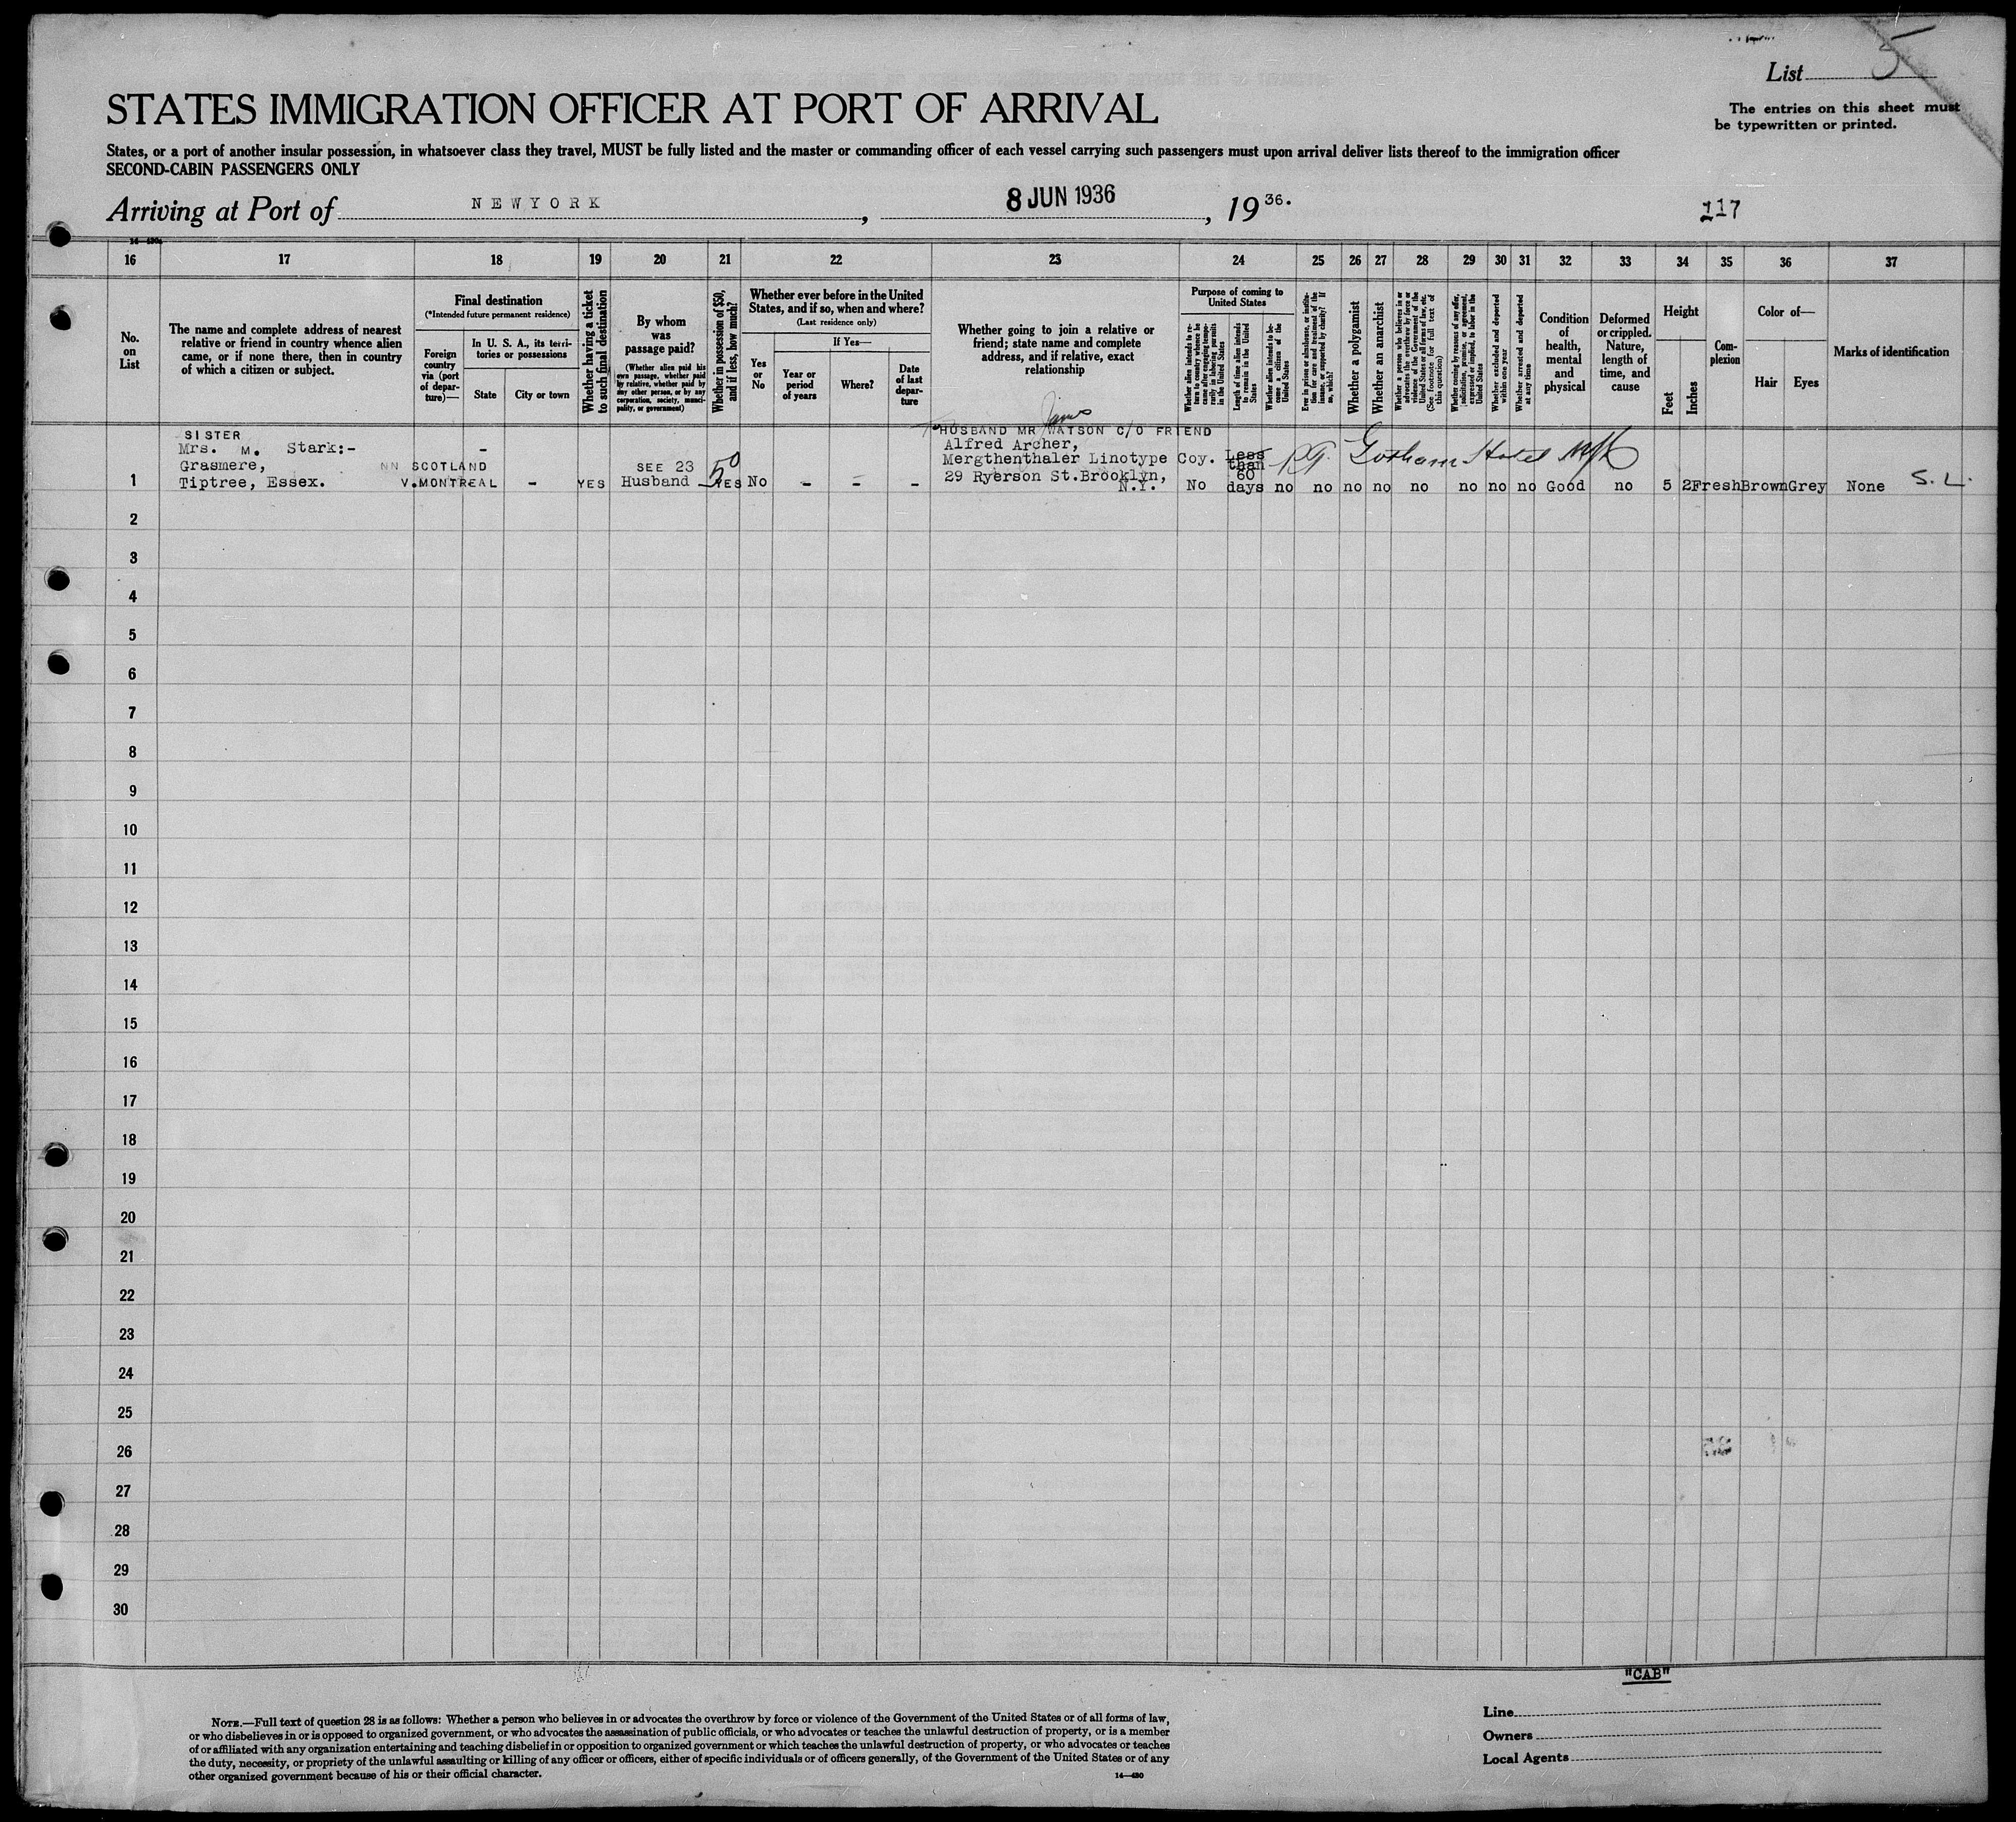 List 5
STATES IMMIGRATION OFFICER AT PORT OF ARRIVAL
The entries on this sheet must
be typewritten or printed.
States, or a port of another insular possession, in whatsoever class they travel, MUST be fully listed and the master or commanding officer of each vessel carrying such passengers must upon arrival deliver lists thereof to the immigration officer
SECOND-CABIN PASSENGERS ONLY
Arriving at Port of NEWYORK, 8 JUN 1936, 1936.
117
16 17 18 19 20 21 22 23 24 25 26 27 28 29 30 31 32 33 34 35 36 37
No.
on
List
The name and complete address of nearest
relative or friend in country whence alien
came, or if none there, then in country
of which a citizen or subject.
Final destination
(*Intended future permanent residence)
Foreign
country
via (port
of depar-
ture)—
In U. S. A., its terri-
tories or possessions
State
City or town
Whether having a ticket
to such final destination
By whom
was
passage paid?
(Whether alien paid his
own passage, whether paid
by relative, whether paid by
any other person, or by any
corporation, society, munici-
pality, or government)
Whether in possession of $50,
and if less, how much?
Whether ever before in the United
States, and if so, when and where?
(Last residence only)
Yes
or
No
If Yes—
Year or
period
of years
Where?
Date
of last
depar-
ture
Whether going to join a relative or
friend; state name and complete
address, and if relative, exact
relationship
Purpose of coming to
United States
Whether alien intends to re-
turn to country whence he
came after engaging tempo-
rarily in laboring pursuits
in the United States
Length of time alien intends
to remain in the United
States
Whether alien intends to be-
come a citizen of the
United States
Ever in prison or almshouse, or institu-
tion for care and treatment of the
insane, or supported by charity? If
so, which?
Whether a polygamist
Whether an anarchist
Whether a person who believes in or
advocates the overthrow by force or
violence of the Government of the
United States or all forms of law, etc.
(See footnote for full text of
this question)
Whether coming by reasons of any offer,
solicitation, promise, or agreement,
expressed or implied, to labor in the
United States
Whether excluded and deported
within one year
Whether arrested and deported
at any time
Condition
of
health,
mental
and
physical
Deformed
or crippled.
Nature,
length of
time, and
cause
Height
Feet
Inches
Com-
plexion
Color of—
Hair
Eyes
Marks of identification
SISTER
Mrs. M. Stark:-
Grasmere,
Tiptree, Essex.
-
NN SCOTLAND
V.MONTREAL -
YES
SEE 23
Husband
50
YES
No - - -
James
HUSBAND MR WATSON C/O FRIEND
Alfred Archer,
Mergthenthaler Linotype Coy.
29 Ryerson St.Brooklyn,
N.Y.
No
Less
than
60
days
Gotham Hotel
no no no no no no no no Good no 5 2 Fresh Brown Grey None S. L.
1
2
3
4
5
6
7
8
9
10
11
12
13
14
15
16
17
18
19
20
21
22
23
24
25
26
27
28
29
30
"CAB"
NOTE.—Full text of question 28 is as follows: Whether a person who believes in or advocates the overthrow by force or violence of the Government of the United States or of all forms of law,
or who disbelieves in or is opposed to organized government, or who advocates the assassination of public officials, or who advocates or teaches the unlawful destruction of property, or is a member
of or affiliated with any organization entertaining and teaching disbelief in or opposition to organized government or which teaches the unlawful destruction of property, or who advocates or teaches
the duty, necessity, or propriety of the unlawful assaulting or killing of any officer or officers, either of specific individuals or of officers generally, of the Government of the United States or of any
other organized government because of his or their official character.
14—430
Line
Owners
Local Agents